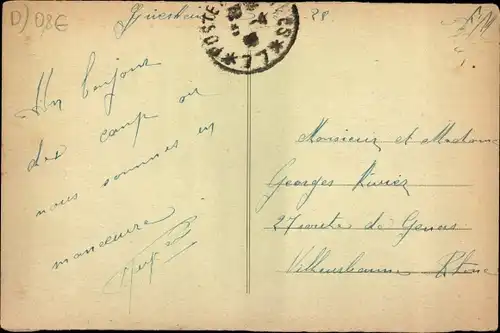 D) D8€
Griesheim 28.
FM
POSTE
Un bonjour
des camp où
nous sommes en
manoeuvre
Monsieur et Madame
Georges
27 route de Genas
Villeurbanne Rhône